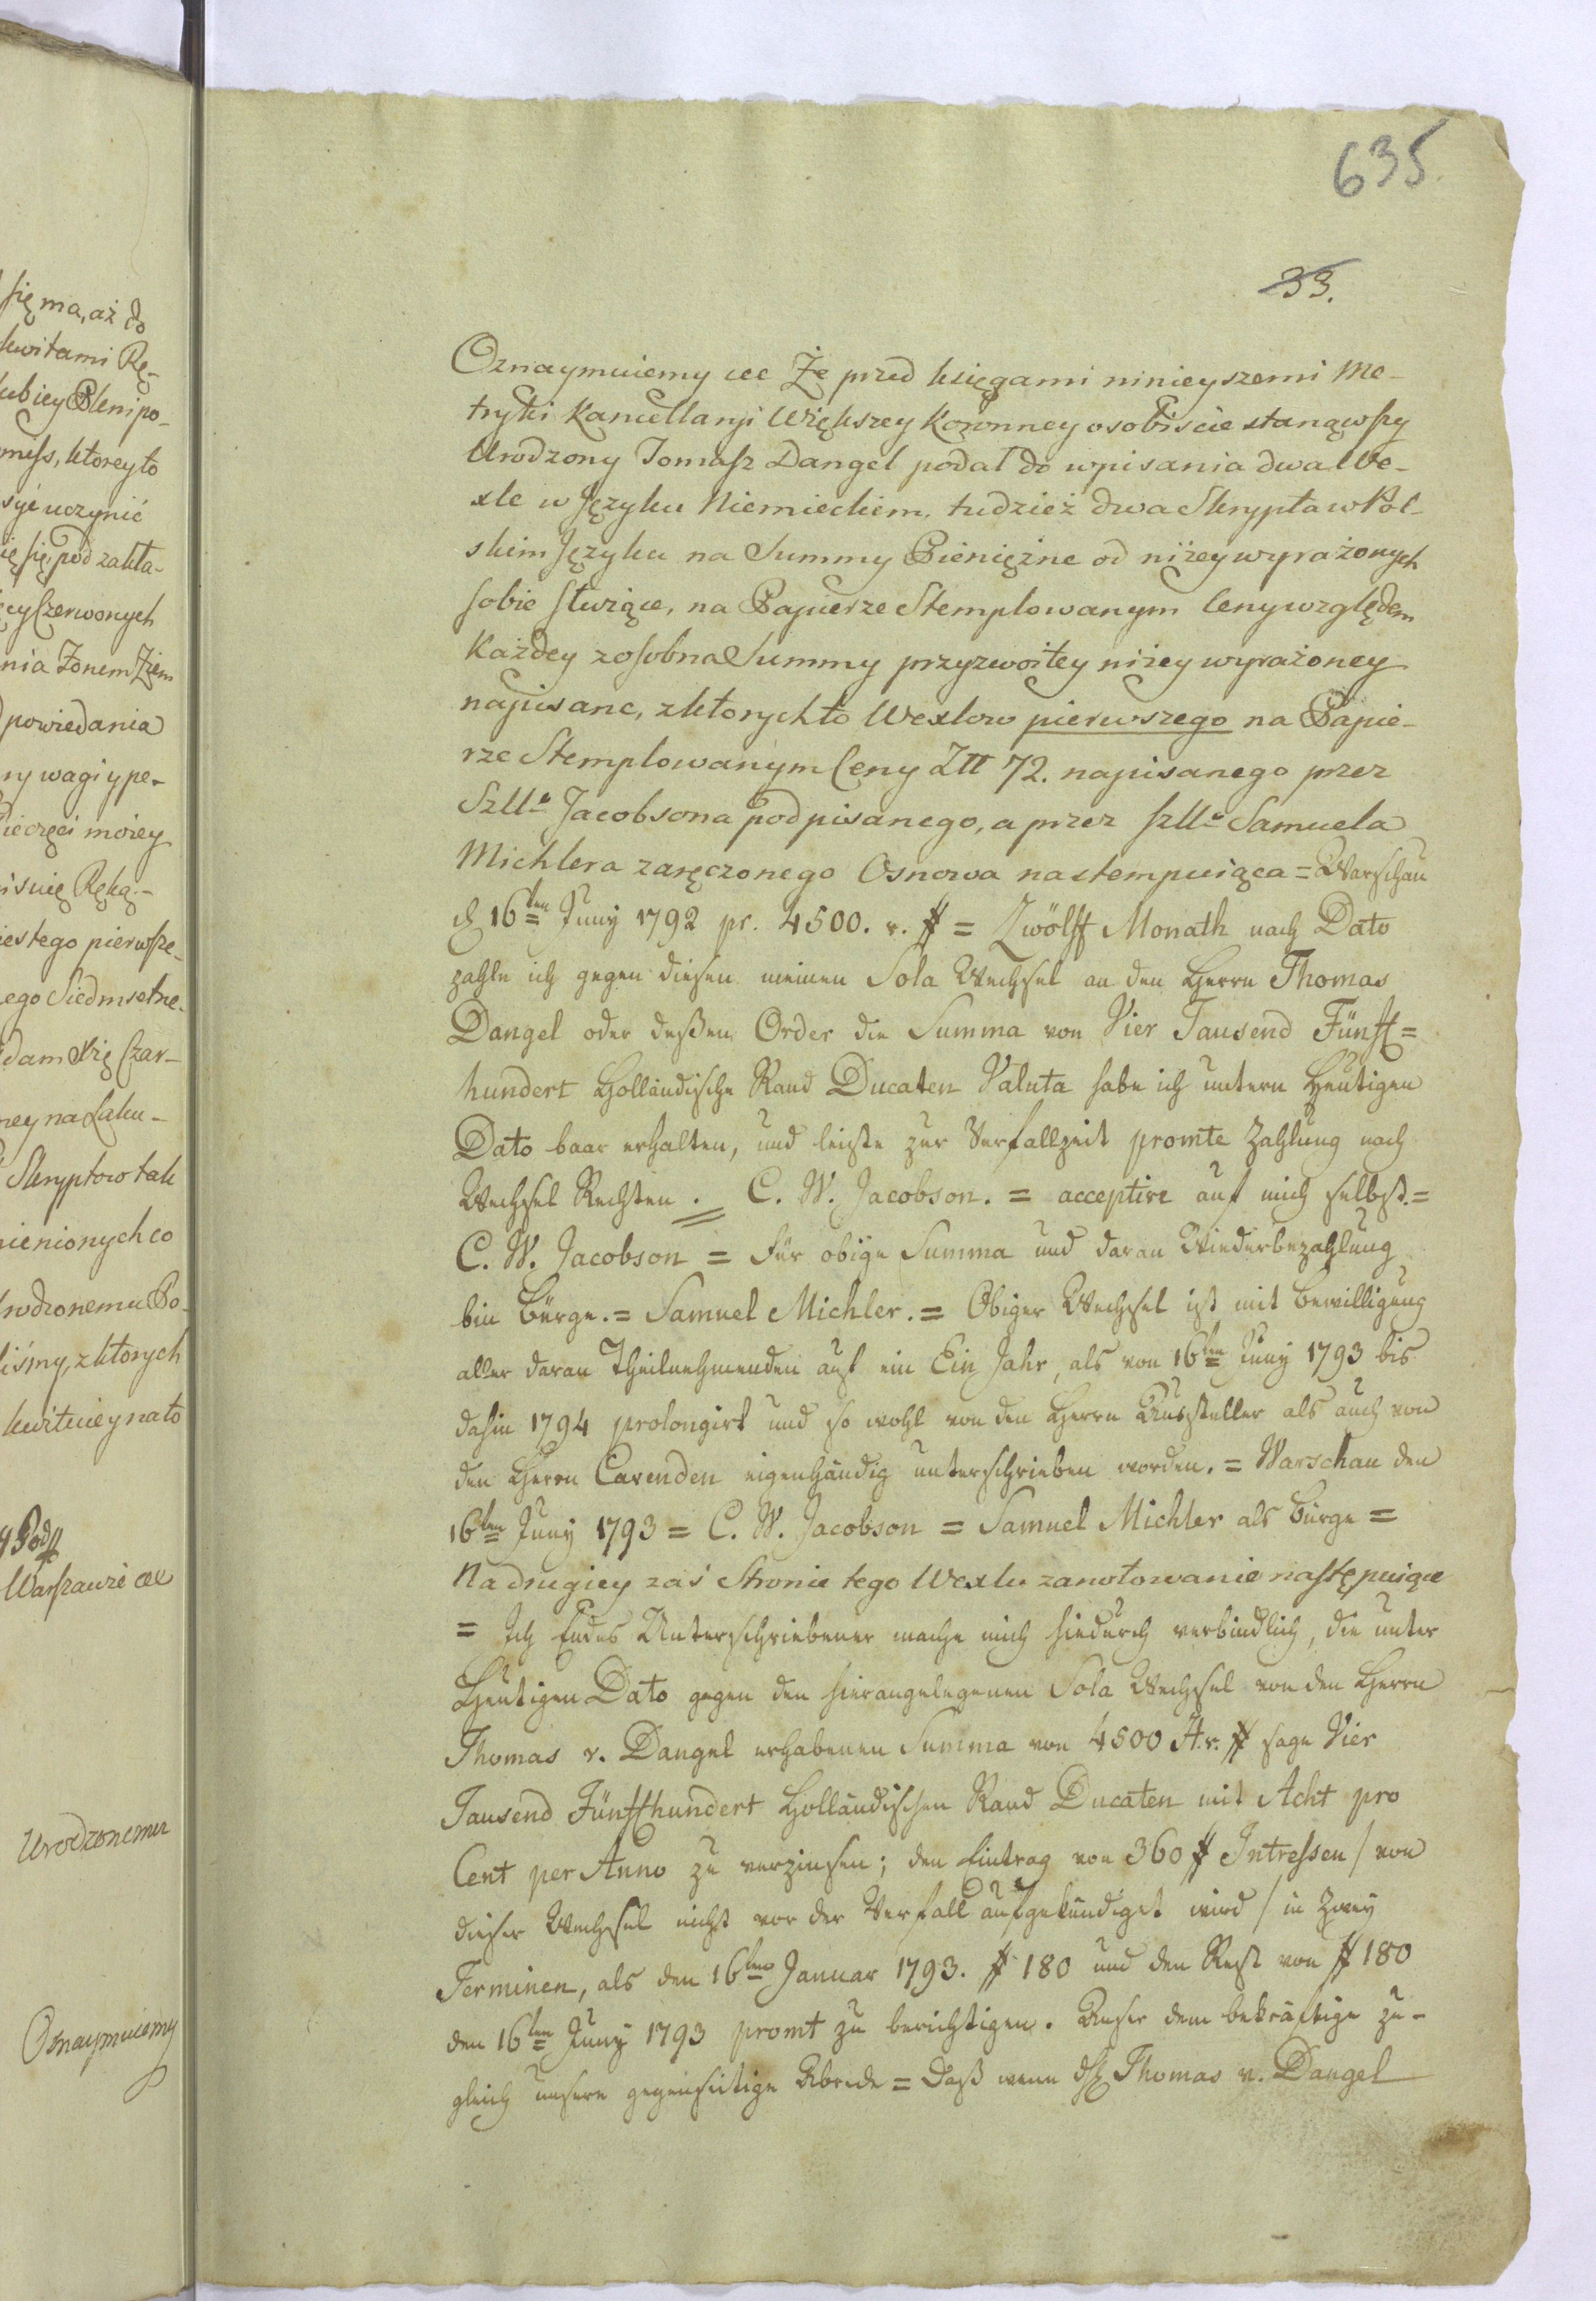 się ma, aż do
kwitami Rę-
lubiey Plenipo-
mess, ktorey to
syć uczynić
ię się, pod zakła-
ęcy Czerwonych
nia Zonem Ziem
powiedania
ny wagi y pe-
Pieczęci moiey
isuię Ręką.-
iestego pierwsze-
ego Siedmsetne-
dam Xię Czar-
ney na Laku-
Skryptow tak
ienionych co
rodzonemu Po-
liśmy, z ktorych
kwituiey na to
Warszawie etc
Urodzonemu
Oznaymuiemy
635.
33.
Oznaymuiemy etc Że przed księgami ninieyszemi Me-
tryki Kancellaryi Większey Koronney osobiscie stanąwszy
Urodzony Tomasz Dangel podał do wpisania dwa We-
xle w Języku Niemieckiem, tudzież dwa Skrypta w Pol-
skim Języku na Summy Pieniężne od niżey wyrażonych
sobie służące, na Papierze Stemplowanym Ceny względem
Każdey z osobna Summy przyzwoitey niżey wyrażoney
napisane, z ktorych to Wexlow pierwszego na Papie-
rze Stemplowanym Ceny Złł 72. napisanego przez
Szll° Jacobsona podpisanego, a przez szll° Samuela
Michlera zaręczonego Osnowa nastempuiąca = Warschau
d 16ten Juny 1792 pr. 4500. r. # = Zwölff Monath nach Dato
zahle ich gegen diesen meinen Sola Wechsel an den Herrn Thomas
Dangel oder deßen Order die Summa von Vier Tausend Fünff=
hundert Holländische Rand Ducaten Valuta habe ich untern Heutigen
Dato baar erhalten, und leiste zur Verfallzeit promte Zahlung nach
Wechsel Rechten. = C. W. Jacobson. = acceptire auf mich selbst. =
C. W. Jacobson = Für obige Summa und daran Wiederbezahlung
bin Bürge. = Samuel Michler. = Obiger Wechsel ist mit Bewilligung
aller daran Theilnehmenden auf ein Ein Jahr, als von 16ten Juny 1793 bis
dahin 1794 prolongirt und so wohl von den Herrn Aussteller als auch von
den Herrn Cavenden eigenhändig unterschrieben worden. = Warschau den
16ten Juny 1793 = C. W. Jacobson = Samuel Michler als Bürge =
Na drugiey zaś Stronie tego Wexlu zanotowanie następuiące
= Ich Endes Unterschriebener mache mich hiedurch verbindlich, die unter
Heutigen Dato gegen den hierangelegenen Sola Wechsel von den Herrn
Thomas v. Dangel erhabenen Summa von 4500 H. r. # sage Vier
Tausend Fünffhundert Holländischen Rand Ducaten mit Acht pro
Cent per Anno zu verzinsen; den Eintrag von 360 # Intressen / von
dieser Wechsel nicht vor der Verfall aufgekündiget wird / in Zwey
Terminen, als den 16ten Januar 1793. # 180 und den Rest von # 180
den 16ten Juny 1793 promt zu berichtigen. Auser dem bekräftige zu-
gleich unsere gegenseitige Abrede = Daß wenn H Thomas v. Dangel